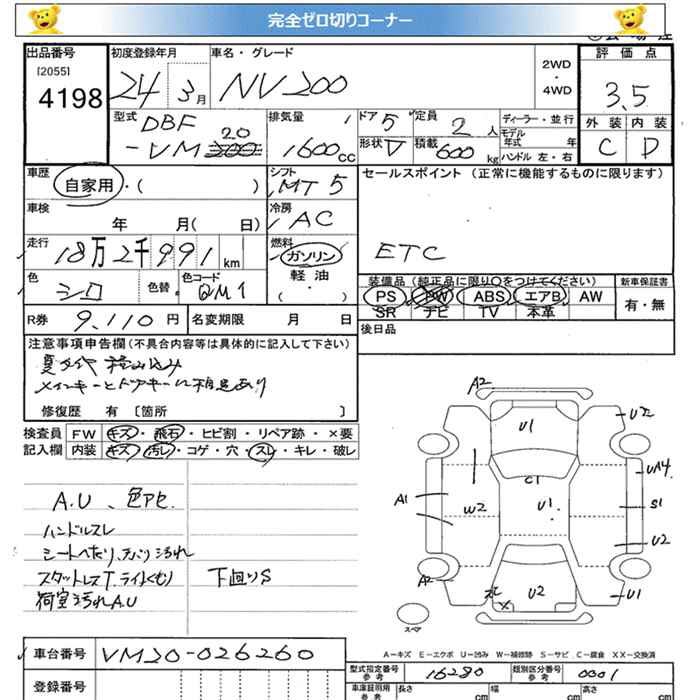 完全ゼロ切りコーナー
出品番号 初度登録年月 車名・グレード 評価点
[2055]
4198 24 3月 NV200 2WD・4WD 3.5
型式 DBF 排気量 ドア 5 定員 2人 ディーラー・並行 外装 内装
20
-VM 1600cc 形状 V 積載 600kg モデル年式 年 C D
ハンドル 左・右
車歴 自家用・( ) シフト MT 5 セールスポイント(正常に機能するものに限ります)
車検 年 月( 日) 冷房 AC
走行 18万2千991km 燃料 ガソリン ETC
軽油
( ・ )
色 シロ 色替 色コード QM1 装備品(純正品に限り○をつけてください) 新車保証書
PS PW ABS エアB AW 有・無
SR ナビ TV 本革
R券 9,110円 名変期限 月 日 後日品
注意事項申告欄(不具合内容等は具体的に記入して下さい)
夏タイヤ積み込み
メインキーとドアキーに相違あり
修復歴 有 [箇所 ]
検査員 FW キズ・飛石・ヒビ割・リペア跡・×要
記入欄 内装 キズ・汚れ・コゲ・穴・スレ・キレ・破レ
A.U、色アセ
ハンドルスレ
シートへたり、天バリ汚れ
スタットレスT.ライトくもり 下回りS
荷室汚れA.U
A2
U1 U2
C1 UA4
A1 W2 U1 S1
U2
A2 U2 U1
X
スペア
A−キズ E−エクボ U−凹み W−補修跡 S−サビ C−腐食 XX−交換済
車台番号 VM20-026260 型式指定番号 参考 16280 類別区分番号 参考 0001
登録番号 車庫証明用 参考 長さ cm 幅 cm 高さ cm